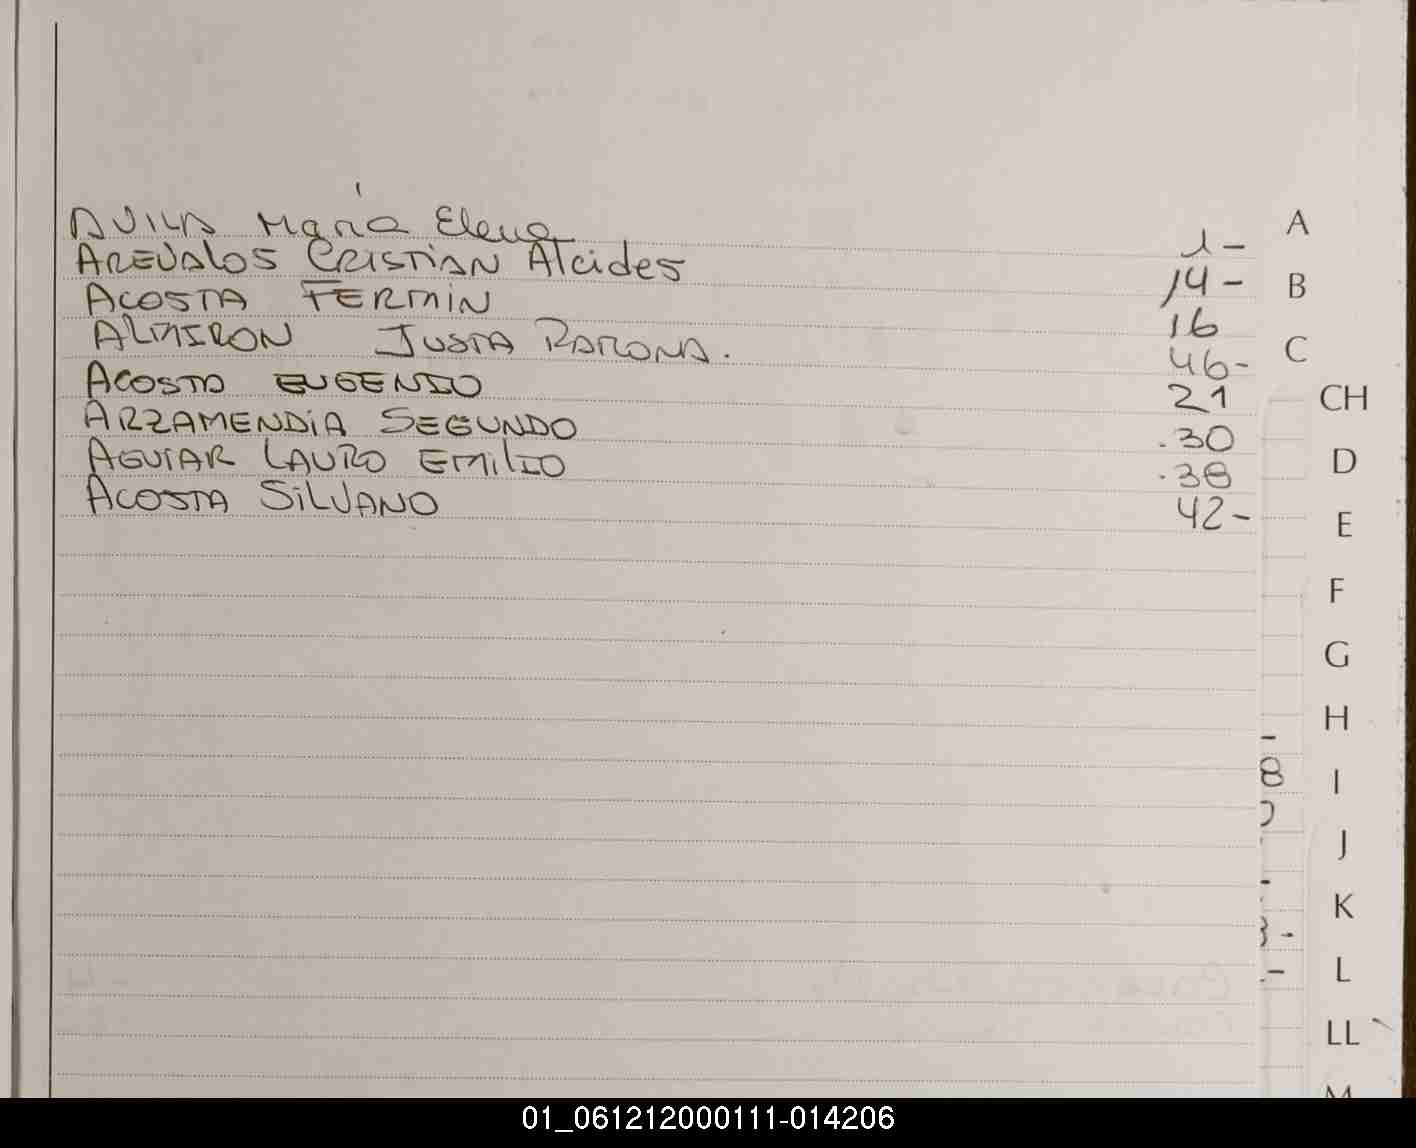 AVILA Maria Elena 1-
AREVALOS CRISTIAN Alcides 14-
ACOSTA FERMIN 16
ALMIRON JUSTA RAMONA. 46-
ACOSTA EUGENIO 21
ARZAMENDIA SEGUNDO .30
AGUIAR LAURO EMILIO .38
ACOSTA SILVANO 42-
A
B
C
CH
D
E
F
G
H
I
J
K
L
LL
M
01_061212000111-014206